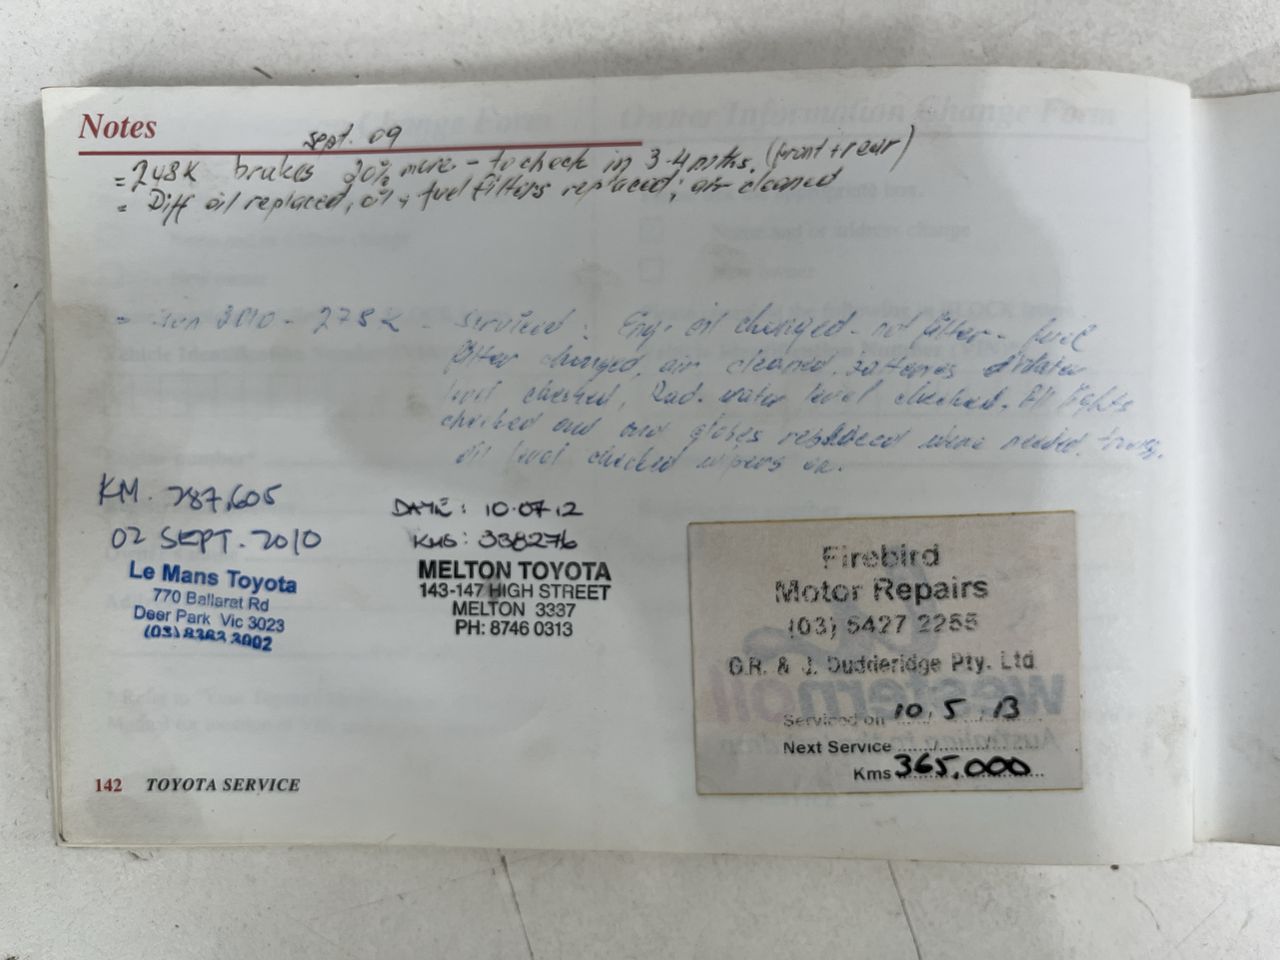 Notes
Sept. 09
= 248K brakes 20% more - to check in 3-4 mths. (front + rear)
= Diff oil replaced, oil + fuel filters replaced; air cleaned
= Jun 2010 - 278K - serviced: Eng. oil changed - not filter - fuel
filter changed, air cleaned, batteries water
level checked, Rad. water level checked. All lights
checked and and globes replaced were needed. trans.
oil level checked wipers
KM. 287,605
02 SEPT. 2010
Le Mans Toyota
770 Ballarat Rd
Deer Park Vic 3023
(03) 8363 3002
DATE: 10.07.12
KMS: 338276
MELTON TOYOTA
143-147 HIGH STREET
MELTON 3337
PH: 8746 0313
Firebird
Motor Repairs
(03) 5427 2255
G.R. & J. Dudderidge Pty. Ltd
Serviced on 10/5/13
Next Service ....../....../......
Kms 365,000
westernoil
142 TOYOTA SERVICE